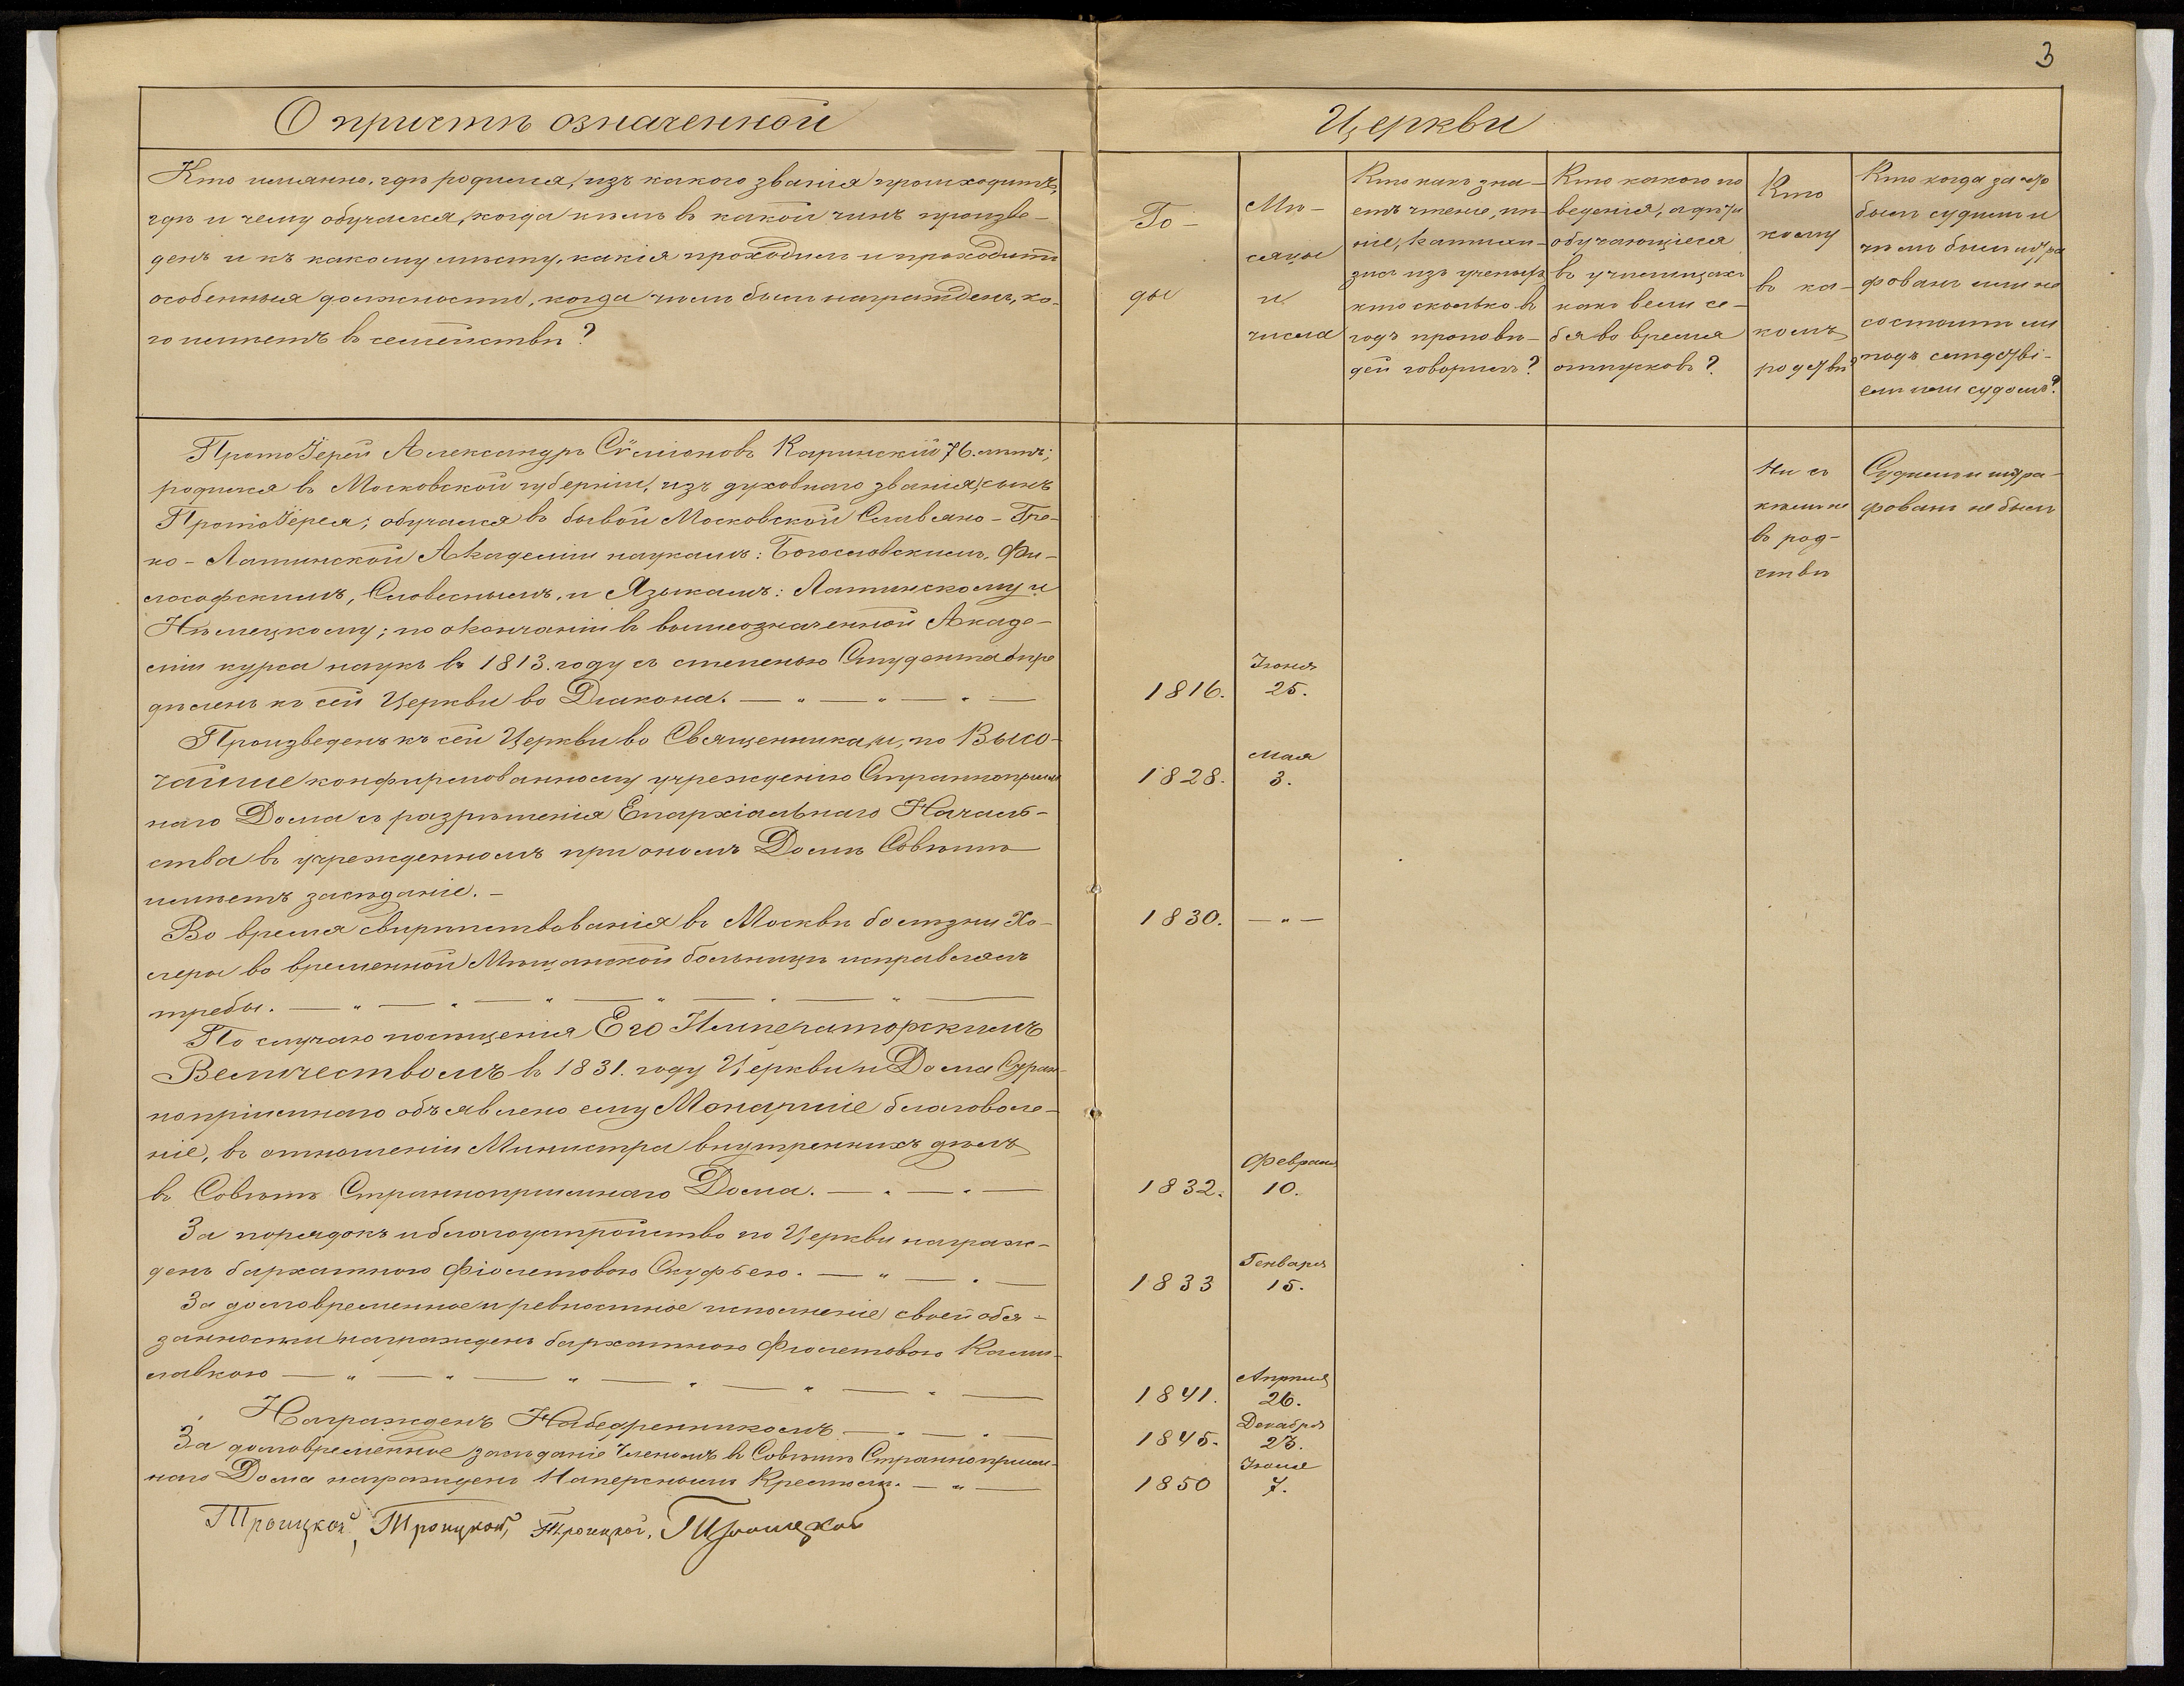 3
О причтѣ означенной Церкви
Кто имянно, гдѣ родился, изъ какого званія происходитъ,
гдѣ и чему обучался, когда кѣмъ въ какой чинъ произве-
денъ и къ какому мѣсту, какія проходилъ и проходитъ
особенныя должности, когда чѣмъ былъ награжденъ, ко-
го имѣетъ въ семействѣ?
Го-
ды
Мѣ-
сяцы
и
числа
Кто какъ зна-
етъ чтеніе, пѣ-
ніе, катихи-
зисъ изъ ученыхъ
кто сколько въ
годъ проповѣ-
дей говорилъ?
Кто какого по
веденія, а дѣти
обучающіеся
въ училищахъ
какъ вели се-
бя во время
отпусковъ?
Кто
кому
въ ка-
комъ
родствѣ?
Кто когда за что
былъ судимъ и
чѣмъ былъ штра
фованъ или не
состоитъ ли
подъ слѣдстві-
емъ или судомъ?
Протоіерей Александръ Сѷмѵоновъ Каринскій 76. лѣтъ;
родился въ Московской губерніи, изъ духовнаго званія, сынъ
Протоіерея; обучался въ бывой Московской Славяно-Гре-
ко-Латинской Академіи наукамъ: Богословскимъ, Фи-
лософскимъ, Словеснымъ, и Языкамъ: Латинскому и
Нѣмецкому; по окончаніи въ вышеозначенной Акаде-
міи курса наукъ въ 1813. году съ степенью Студента опре
дѣленъ къ сей Церкви во Діакона. — " — " — " —
1816.
Іюня
25.
Ни съ
кѣмъ не
въ род-
ствѣ
Судимъ и штра-
фованъ не былъ
Произведенъ къ сей Церкви во Священника, и, по Высо-
чайше конфирмованному учрежденію Страннопріим
наго Дома съ разрѣшенія Епархіальнаго Началь-
ства въ учрежденномъ при ономъ Домѣ Совѣтѣ
имѣетъ засѣданіе. —
1828.
Мая
3.
Во время свирѣпствованія въ Москвѣ болѣзни Хо-
леры во временной Мѣщанской больницѣ исправлялъ
требы. — " — " — " — " — " — " —
1830.
— " —
По случаю посѣщенія Его Императорскимъ
Величествомъ въ 1831. году Церкви и Дома Стран-
нопріимнаго объявлено ему Монаршіе благоволе-
ніе, въ отношеніи Министра внутреннихъ дѣлъ
въ Совѣтъ Страннопріимнаго Дома. — " — " —
1832.
Февраля
10.
За порядокъ и благоустройство по Церкви награж-
денъ бархатною фіолетовою Скуфьею. — " — " —
1833
Генваря
15.
За долговременное и ревностное исполненіе своей обя-
занности награжденъ бархатною Фіолетовою Ками-
лавкою — " — " — " — " — " — " —
1841.
Апрѣля
26.
Награжденъ Набедренникомъ. — " — " —
1845.
Декабря
23.
За долговременное засѣданіе Членомъ въ Совѣтѣ Страннопріим-
наго Дома награжденъ Наперснымъ Крестомъ. — " —
1850
Іюля
7.
Троицкой, Троицкой, Троицкой, Троицкой